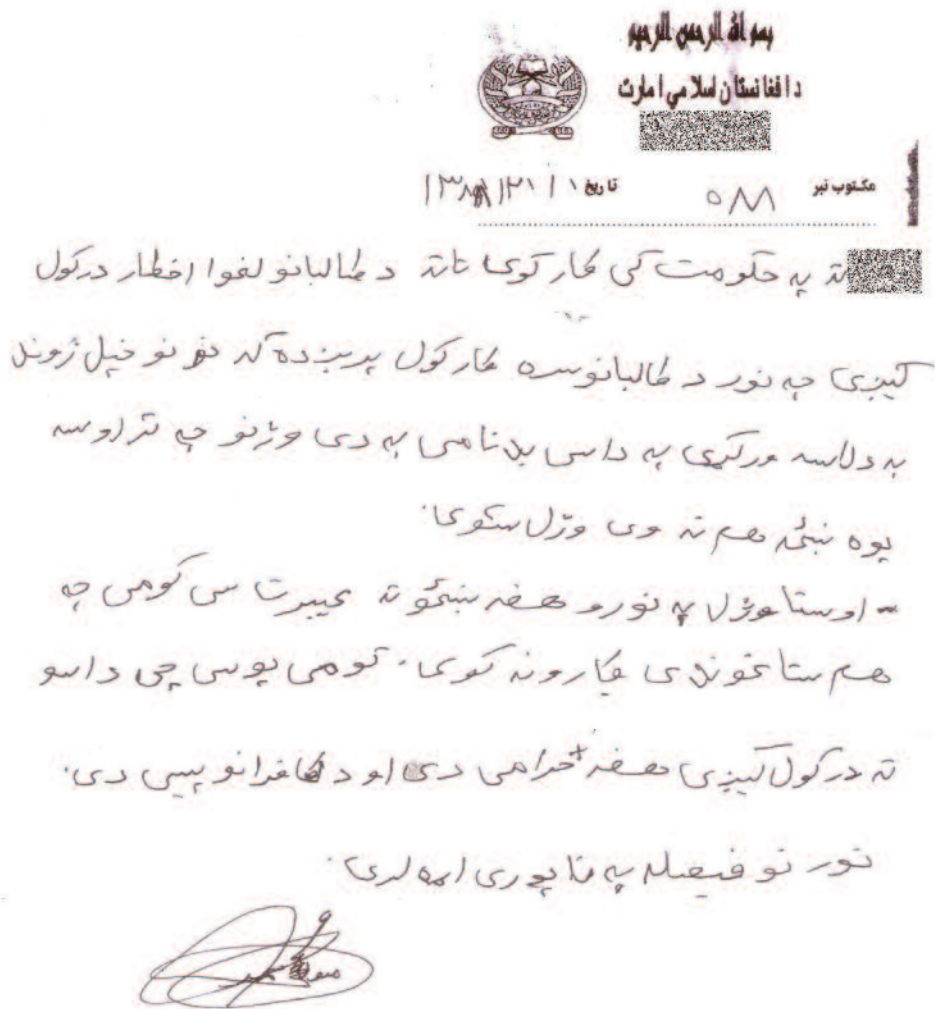 بسم الله الرحمن الرحيم
د افغانستان اسلامي امارت
مکتوب نبر ۵۸۸ تاريخ ۱ / ۲۱ /
ته په حکومت کی کار کوی تاته د طالبانو لخوا اخطار درکول
کیږی چه نور د طالبانو سره کار کول پریږده که نو خپل ژوند
به دلاسه ورکړی په داسی بدنامی به دی وژنو چه تر اوسه
یوه ښځه هم نه وی وژل شوی.
- او ستا وژل به نورو هغه ښځو ته عیبرت سی کومی چه
هم ستا غوندی کارونه کوی. کومی پوسی چی داسو
ته درکول کیږی هغه حرامی دی او د کافرانو پیسی دی.
نور نو فیصله په تا پوری اړه لری.